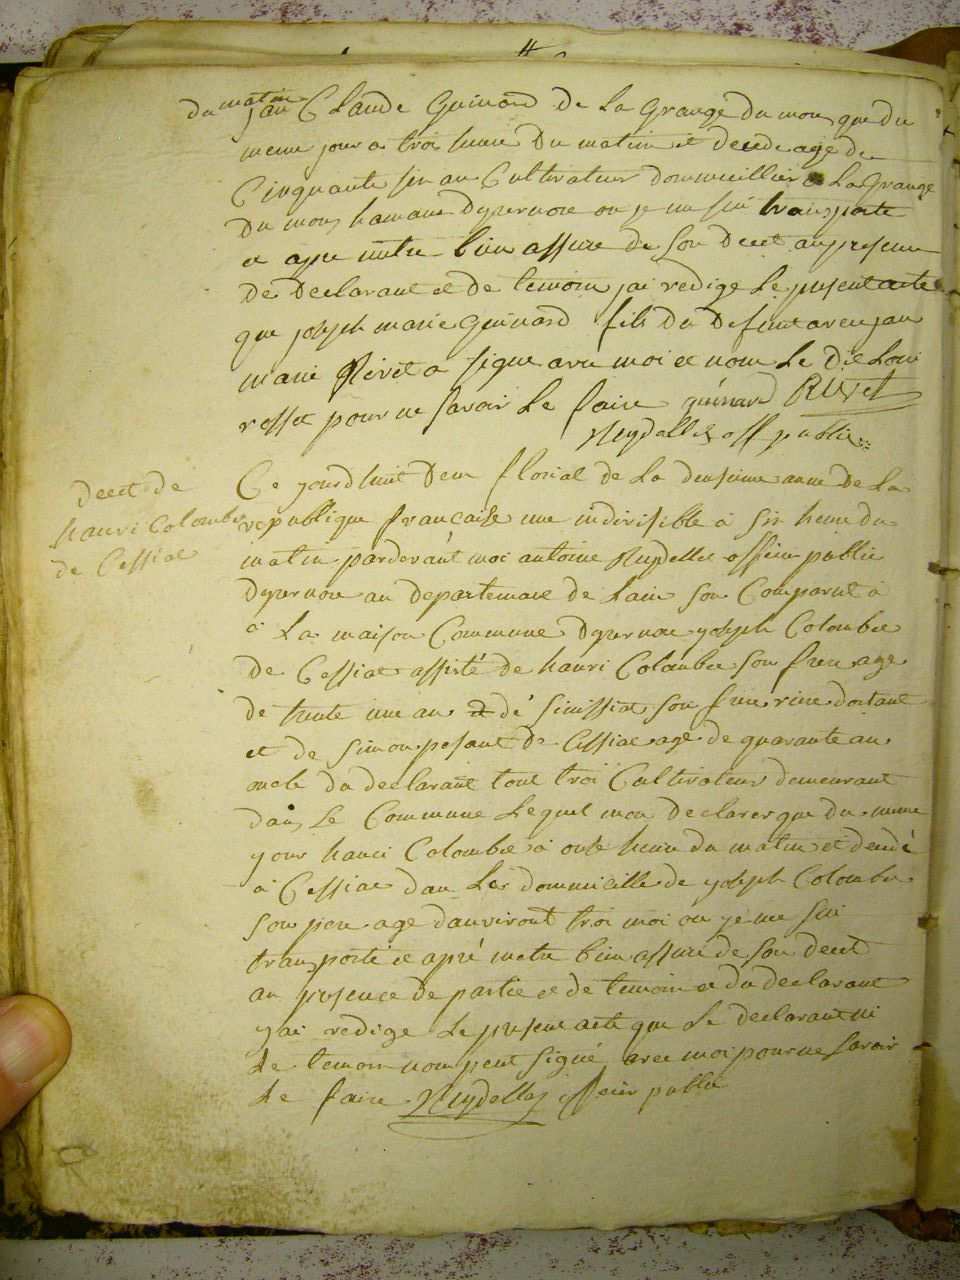 du matin
jan Claude Guinard de La Grange du mon que du
meme jour a troi heure du matin et decede age de
Cinquante sin an Cultivateur dommicillier a La Grange
du mon hamaux dyzernore ou je me sui transporte
et apre metre bien assure de son decet an presence
de declarant et de temoin jai redige le present acte
que joseph marie Guinard fils du defunt avec jan
marie Rivet a signe avec moi et nom le dit Loui
rosset pour ne savoir le faire guinard RIVet
Reydellet off public
decet de
hanri Colombe
de Cessiat
Ce jourdhuit deux florial de la deusieme anne de La
republique francaise une indivisible a sin heure du
matin pardevant moi antoine Reydellet officier public
dyzernore au departemant de Lain son Comparut a
a La maison Commune dyzernore joseph Colombe
de Cessiat assisté de hanri Colombe son frere age
de trente une an de son frere
et de simon de Cessiat age de quarante an
oncle du declarant tout troi Cultivateur demeurant
dans le Commune Lequel mon declarer que du meme
jour hanri Colombe a onle heure du matin et decedé
a Cessiat dan Les dommicille de joseph Colombe
son pere age danviront troi moi ou je me sui
transporté et apré metre bien assure de son decet
an presence de partie et de temoin et du declarant
jai redige le present acte que le declarant ni
le temoin nom peut signé avec moi pour ne savoir
le faire Reydellet officier public